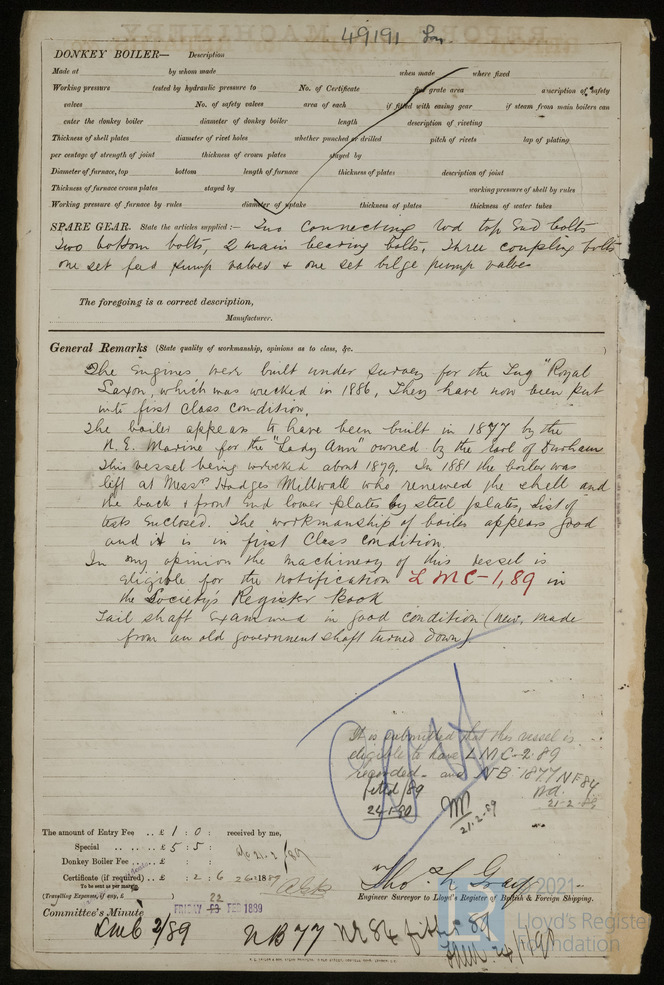 49191 Lon
DONKEY BOILER— Description
Made at by whom made when made where fixed
Working pressure tested by hydraulic pressure to No. of Certificate fire grate area description of safety
valves No. of safety valves area of each if fitted with easing gear if steam from main boilers can
enter the donkey boiler diameter of donkey boiler length description of riveting
Thickness of shell plates diameter of rivet holes whether punched or drilled pitch of rivets lap of plating
per centage of strength of joint thickness of crown plates stayed by
Diameter of furnace, top bottom length of furnace thickness of plates description of joint
Thickness of furnace crown plates stayed by working pressure of shell by rules
Working pressure of furnace by rules diameter of uptake thickness of plates thickness of water tubes
SPARE GEAR. State the articles supplied:— Two connecting rod top End bolts
Two bottom bolts, 2 main bearing bolts, Three coupling bolts
one set feed pump valves & one set bilge pump valves
The foregoing is a correct description,
Manufacturer.
General Remarks (State quality of workmanship, opinions as to class, &c.
The Engines were built under survey for the Tug "Royal
Saxon, which was wrecked in 1886, They have now been put
into first Class condition.
The boiler appears to have been built in 1877 by the
N. E. Marine for the "Lady Ann" owned by the Earl of Durham
This vessel being wrecked about 1879. In 1881 the boiler was
left at Messrs Hodges Millwall who renewed the shell and
the back & front End lower plates by steel plates, list of
tests Enclosed. The workmanship of boiler appears good
and it is in first Class condition.
In my opinion the machinery of this vessel is
eligible for the notification LMC-1,89 in
the Society's Register Book
Tail shaft Examined in good condition (new, made
from an old government shaft turned down)
It is submitted that this vessel is
eligible to have LMC-2.89
recorded - and NB 1877 NF84
fitted /89
24-1-90
21-2-89
21-2-89
The amount of Entry Fee .. £ 1 : 0 : received by me,
Special .. .. .. £ 5 : 5 :
Donkey Boiler Fee .. £ : :
Certificate (if required) .. £ : 2 : 6 26 1889
To be sent as per margin.
(Travelling Expenses, if any, £ )
Tho. L Gray
Engineer Surveyor to Lloyd's Register of British & Foreign Shipping.
Committee's Minute
FRIDAY 22 FEB 1889
LMC 2/89 NB 77 NF 84 fitted 89
© 2021
Lloyd's Register
Foundation